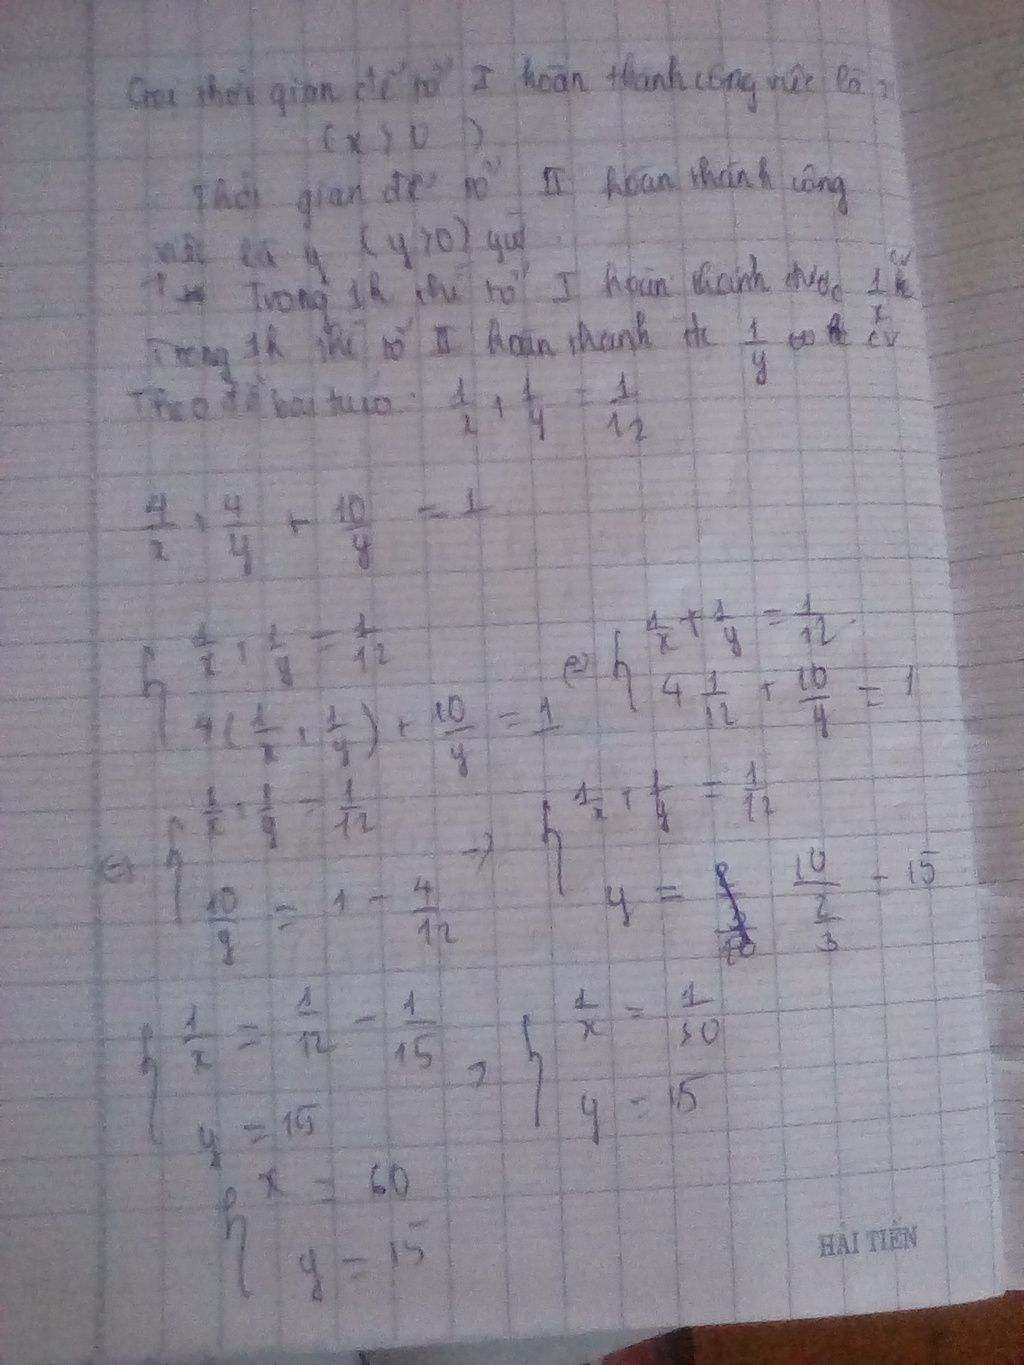 Gọi thời gian để tổ I hoàn thành công việc là x
(x > 0 )
thời gian để tổ II hoàn thành công
việc là y (y>0) giờ
Trong 1h thì tổ I hoàn thành được 1/x cv
Trong 1h thì tổ II hoàn thành đc 1/y cv
Theo đề bài ta có: 1/x + 1/y = 1/12
4/x + 4/y + 10/y = 1
{ 1/x + 1/y = 1/12 (=) { 1/x + 1/y = 1/12
4(1/x + 1/y) + 10/y = 1 4 1/12 + 10/y = 1
(=) { 1/x + 1/y = 1/12 -> { 1/x + 1/y = 1/12
10/y = 1 - 4/12 y = 10/(2/3) = 15
{ 1/x = 1/12 - 1/15 { 1/x = 1/60
y = 15 y = 15
{ x = 60
y = 15
HẢI TIẾN